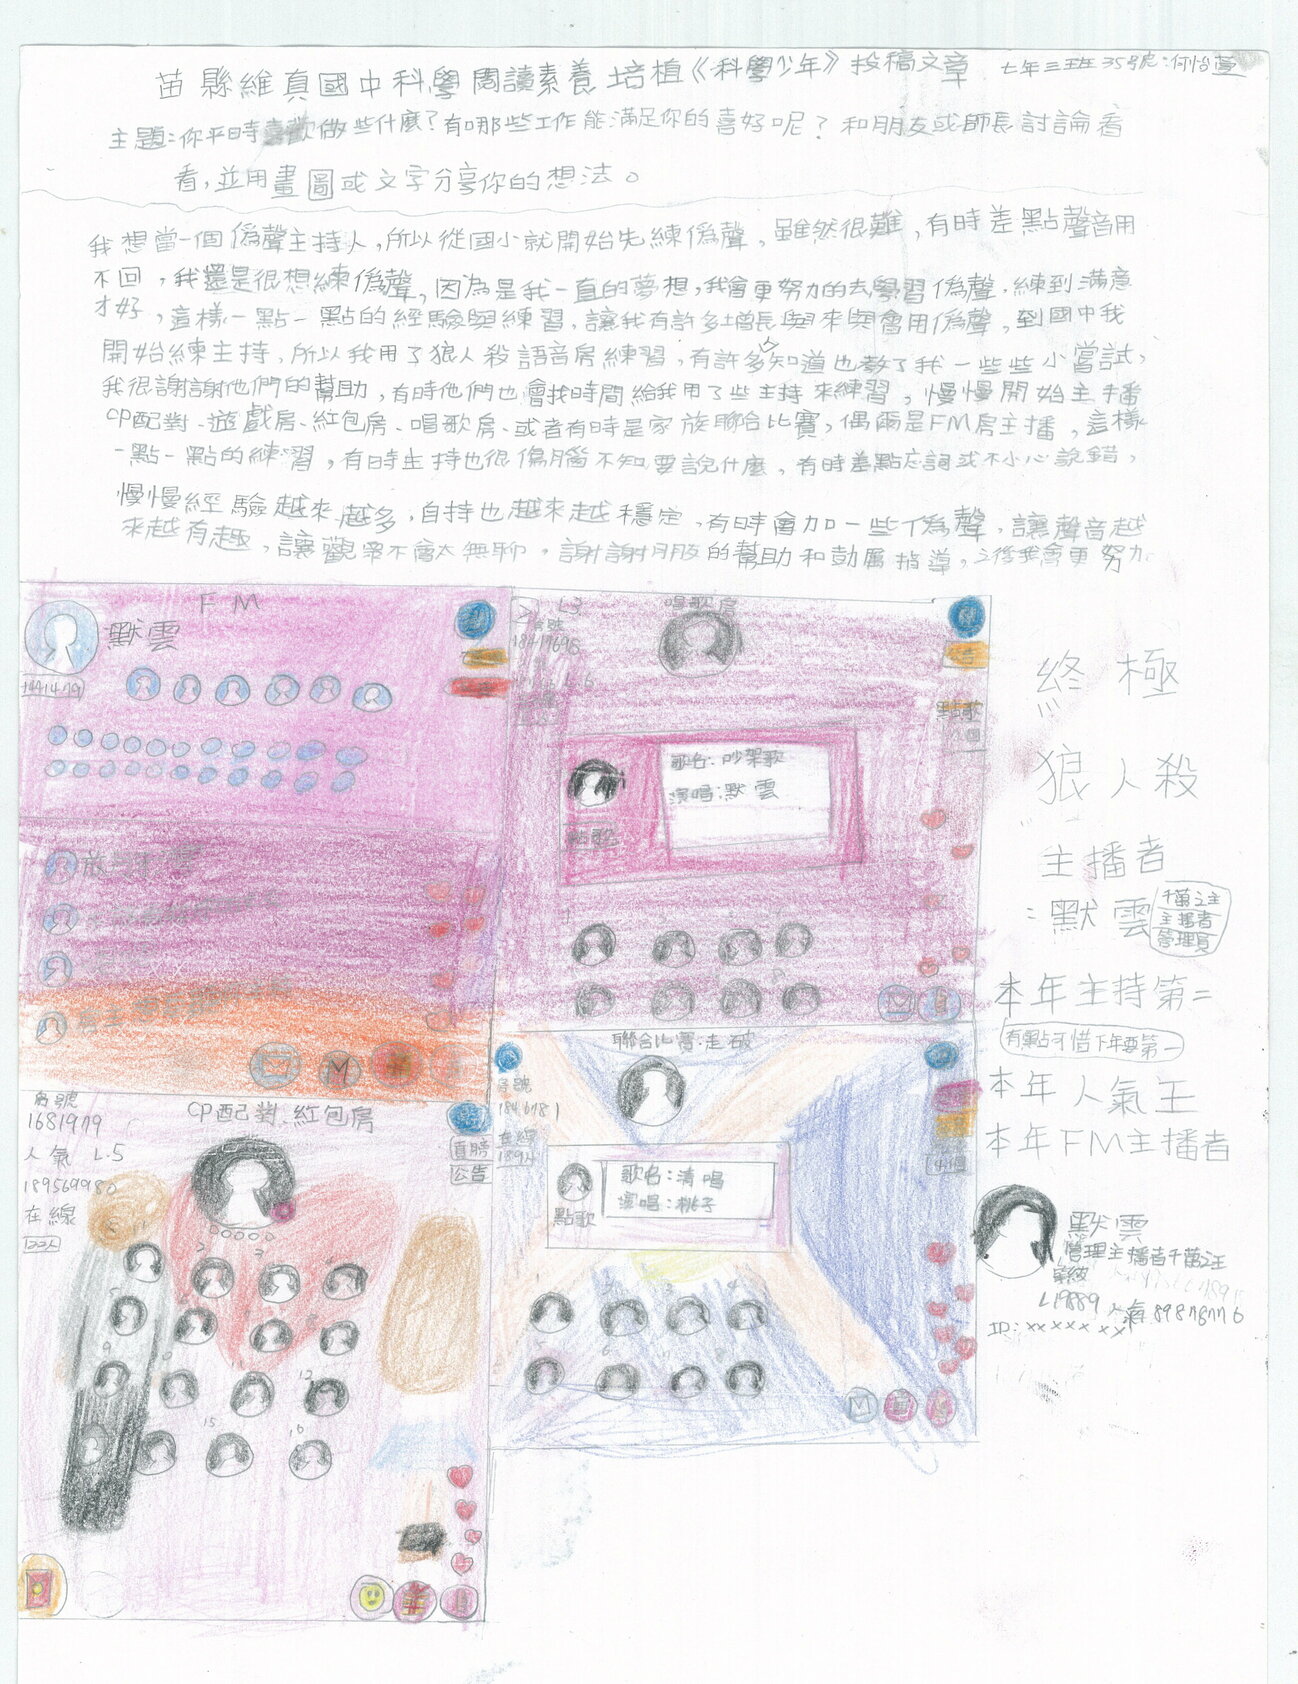 苗縣維真國中科學閱讀素養培植《科學少年》投稿文章 七年三班35號:何怡萱
主題:你平時喜歡做些什麼?有哪些工作能滿足你的喜好呢?和朋友或師長討論看
看,並用畫圖或文字分享你的想法。
我想當一個偽聲主持人,所以從國小就開始先練偽聲,雖然很難,有時差點聲音用
不回,我還是很想練偽聲,因為是我一直的夢想,我會更努力的去學習偽聲,練到滿意
才好,這樣一點一點的經驗與練習,讓我有許多增長與來與會用偽聲,到國中我
開始練主持,所以我用了狼人殺語音房練習,有許多人知道也教了我一些些小嘗試,
我很謝謝他們的幫助,有時他們也會找時間給我用了些主持來練習,慢慢開始主播
CP配對、遊戲房、紅包房、唱歌房、或者有時是家族聯合比賽,偶爾是FM房主播,這樣
一點一點的練習,有時主持也很傷腦不知要說什麼,有時差點忘詞或不小心說錯,
慢慢經驗越來越多,自持也越來越穩定,有時會加一些偽聲,讓聲音越
來越有趣,讓觀眾不會太無聊,謝謝朋友的幫助和勛屬指導,之後我會更努力
FM
默雲
唱歌房
L3
點歌
歌名:吵架歌
演唱:默雲
點歌
終極
狼人殺
主播者
:默雲
千萬之主
主播者
管理員
本年主持第二
有點可惜下年要第一
本年人氣王
本年FM主播者
默雲
管理主播者千萬之主
等級
L19889 人氣898787776
ID:xxxxxx
房號
1681979
人氣 L.5
189569980
在線
CP配對、紅包房
公告
聯合比賽:走破
在線
歌名:清唱
演唱:桃子
點歌